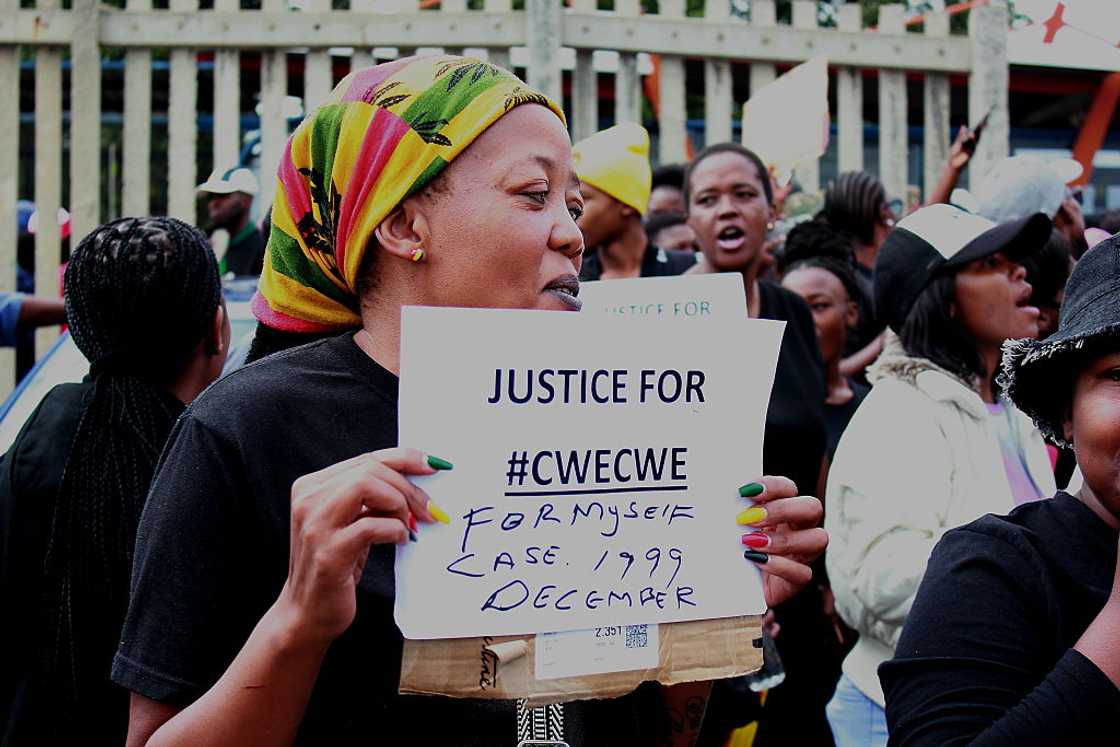 JUSTICE FOR
JUSTICE FOR
#CWECWE
FOR MYSELF
CASE. 1999
DECEMBER
2.351